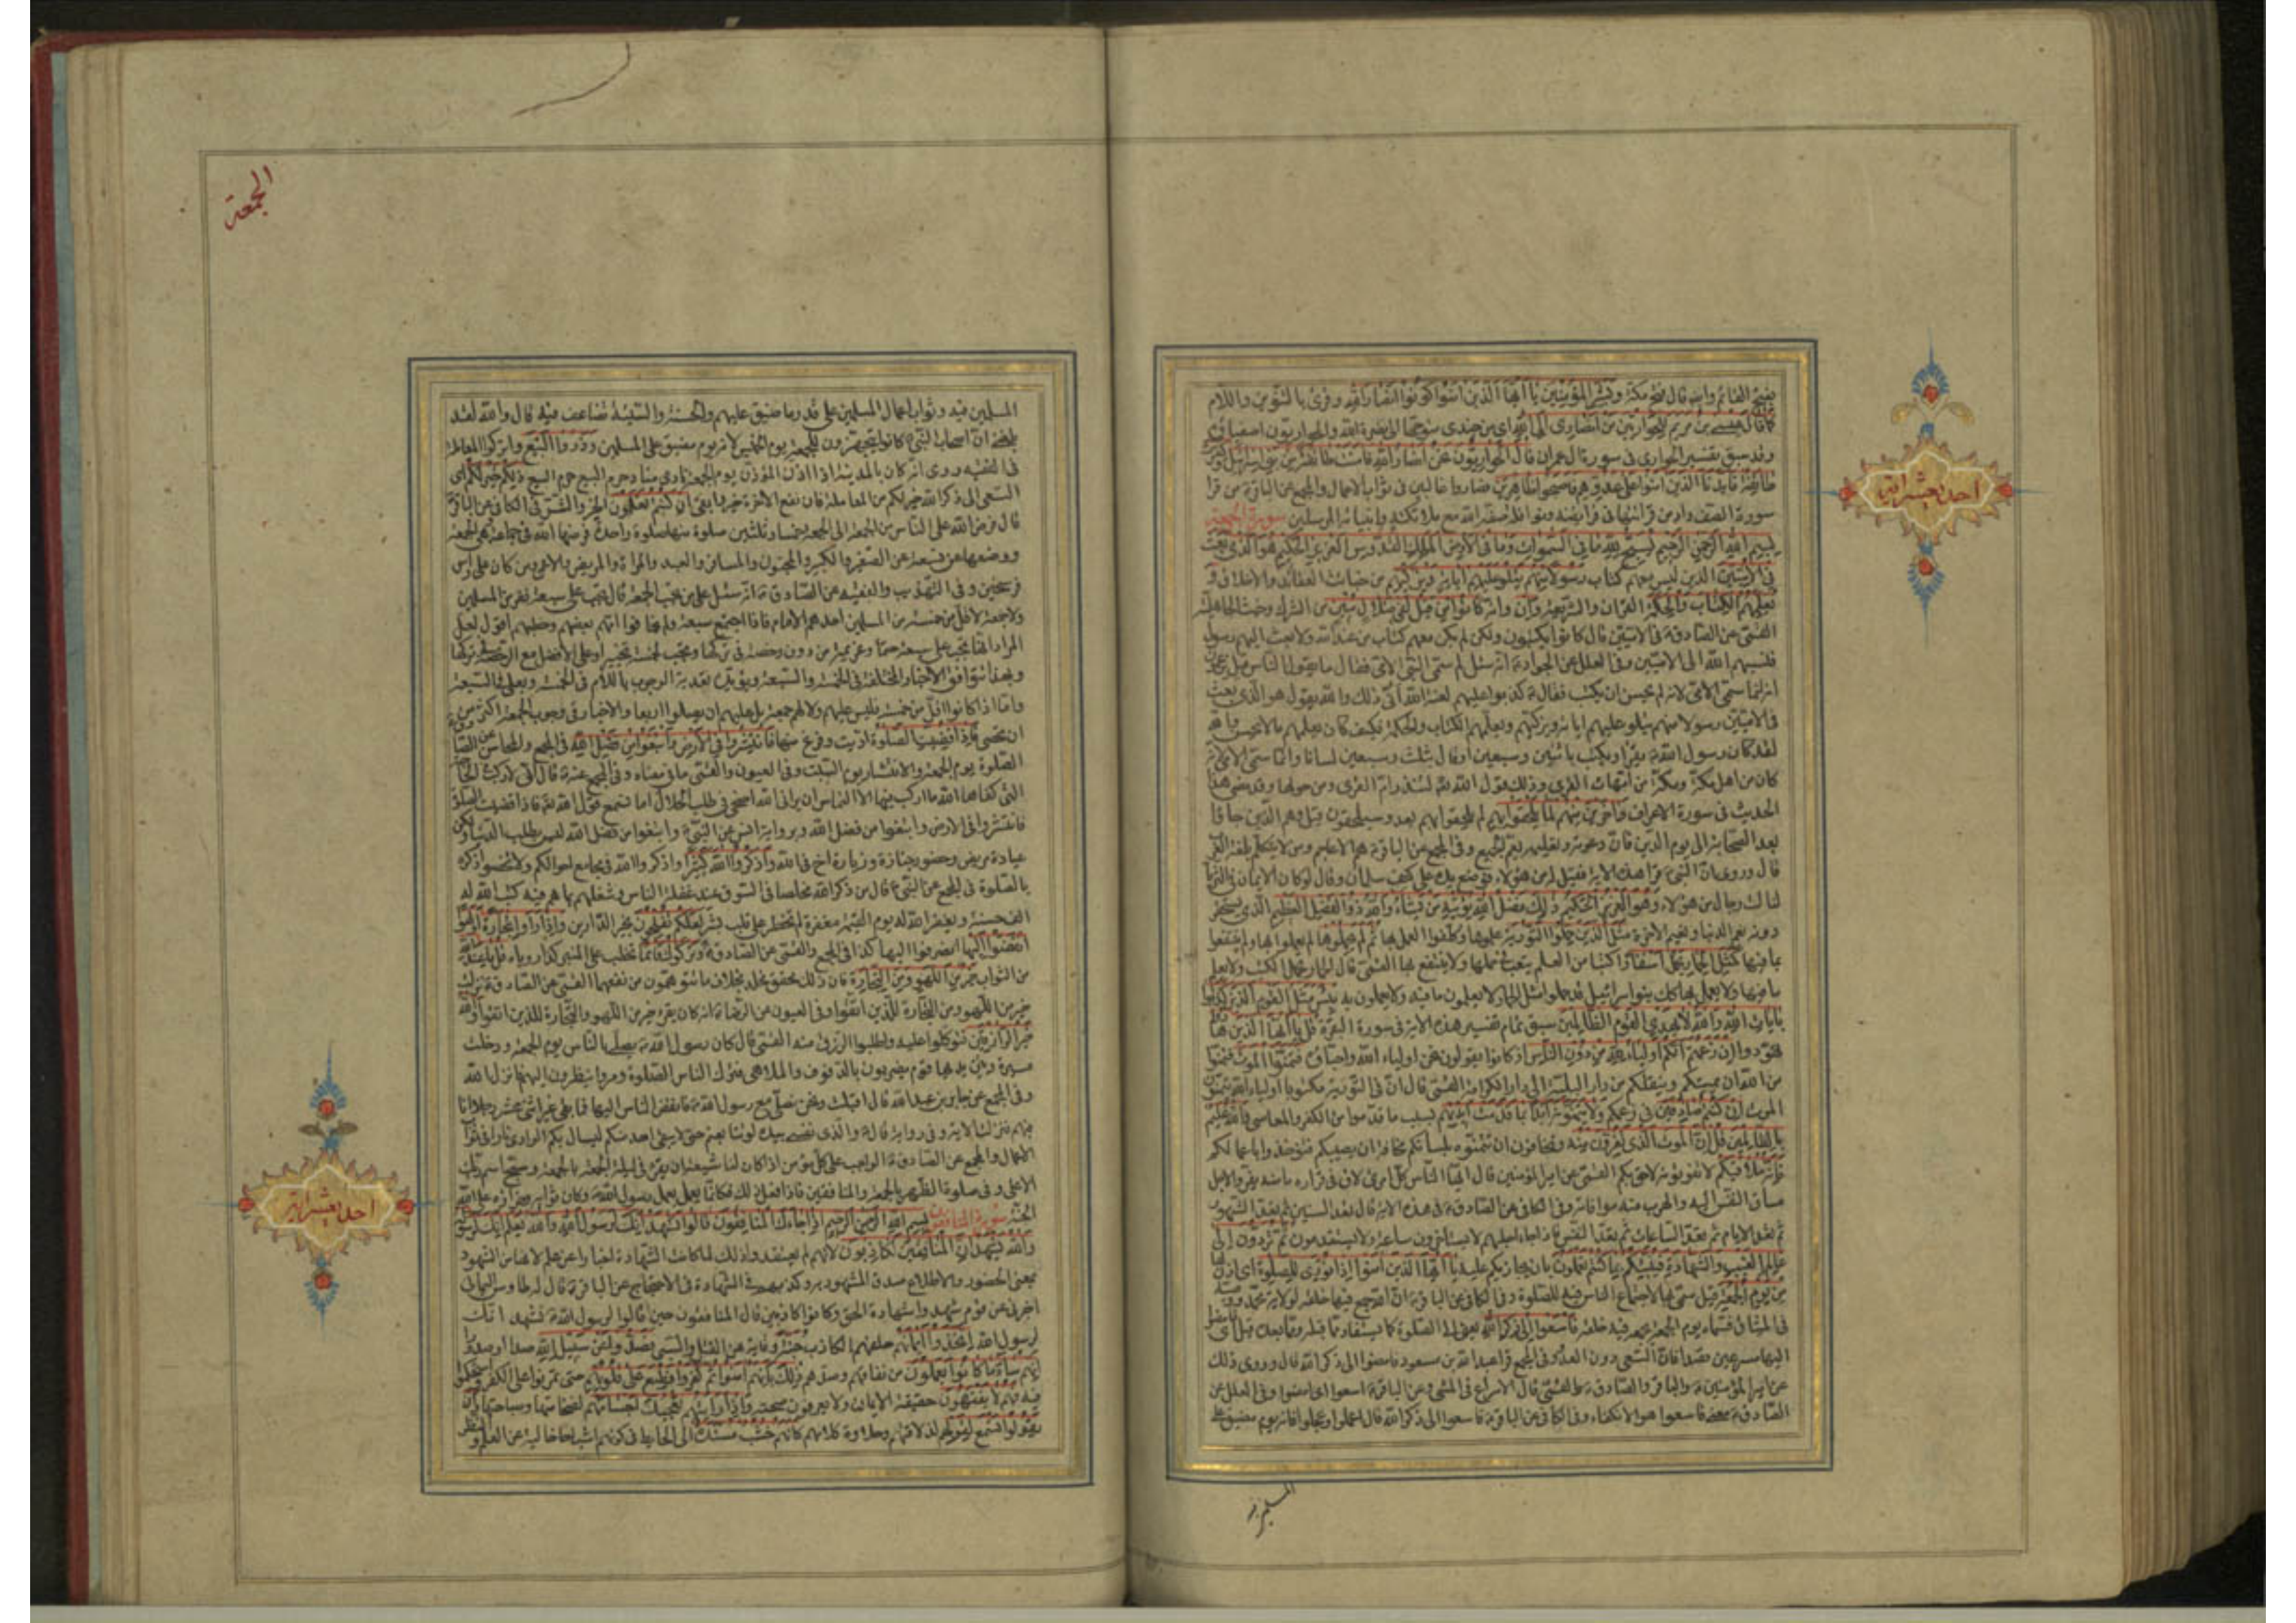 بفتح القائم وايضا قال فتح مكة وبشر المؤمنين يا أيها الذين آمنوا كونوا أنصار الله وقرئ بالتنوين واللام
كما قال عيسى بن مريم للحواريين من أنصاري إلى الله اي من جندي متوجها الى نصرة الله والحواريون اصفياؤه
وقد سبق تفسير الحواري في سورة آل عمران قال الحواريون نحن أنصار الله فآمنت طائفة من بني إسرائيل وكفرت
طائفة فأيدنا الذين آمنوا على عدوهم فأصبحوا ظاهرين فصاروا غالبين في ثواب الاعمال والمجمع عن الباقر من قرأ
سورة الصف وادمن قرائتها في فرايضه ونوافله صفه الله مع ملائكته وانبيائه المرسلين سورة الجمعة
بسم الله الرحمن الرحيم يسبح لله ما في السموات وما في الأرض الملك القدوس العزيز الحكيم هو الذي بعث
في الأميين الذين ليس معهم كتاب رسولا منهم يتلو عليهم آياته ويزكيهم من خبائث العقائد والاخلاق و
يعلمهم الكتاب والحكمة القرآن والشريعة وان وإن كانوا من قبل لفي ضلال مبين من الشرك وخبث الجاهلية
القمي عن الصادق في الاميين قال كانوا يكتبون ولكن لم يكن معهم كتاب من عند الله ولا بعث اليهم رسول
فنسبهم الله الى الاميين وفي العلل عن الجواد انه سئل لم سمي النبي الامي فقال ما يقول الناس قيل يزعمون
انه انما سمي الامي لانه لم يحسن ان يكتب فقال كذبوا عليهم لعنة الله انى ذلك والله يقول هو الذي بعث
في الاميين رسولا منهم يتلو عليهم اياته ويزكيهم ويعلمهم الكتاب والحكمة فكيف كان يعلمهم ما لا يحسن والله
لقد كان رسول الله يقرأ ويكتب باثنين وسبعين او قال بثلث وسبعين لسانا وانما سمي الامي لانه
كان من اهل مكة ومكة من امهات القرى وذلك قول الله لتنذر ام القرى ومن حولها وقد مضى هذا
الحديث في سورة الاعراف وآخرين منهم لما يلحقوا بهم لم يلحقوا بهم بعد وسيلحقون وهم الذين جاؤا
بعد الصحابة الى يوم الدين فان دعوته وتعليمه يعم الجميع وفي المجمع عن الباقر هم الاعاجم ومن لا يتكلم بلغة العرب
قال وروي ان النبي قرأ هذه الاية فقيل له من هؤلاء فوضع يده على كتف سلمان وقال لو كان الايمان في الثريا
لنالته رجال من هؤلاء وهو العزيز الحكيم ذلك فضل الله يؤتيه من يشاء والله ذو الفضل العظيم الذي يستحقر
دونه نعيم الدنيا ونعيم الاخرة مثل الذين حملوا التورية علموها وكلفوا العمل بها ثم لم يحملوها لم يعملوا بها ولم ينتفعوا
بما فيها كمثل الحمار يحمل أسفارا كتبا من العلم يتعب في حملها ولا ينتفع بها القمي قال الحمار يحمل الكتب ولا يعلم
ما فيها ولا يعمل بها كذلك بنو اسرائيل قد حملوا مثل الحمار لا يعلمون ما فيه ولا يعملون به بئس مثل القوم الذين كذبوا
بآيات الله والله لا يهدي القوم الظالمين سبق تمام تفسير هذه الاية في سورة البقرة قل يا أيها الذين هادوا
تهودوا إن زعمتم أنكم أولياء لله من دون الناس اذ كانوا يقولون نحن اولياء الله واحباؤه فتمنوا الموت فتمنوا
من الله ان يميتكم وينقلكم من دار البلية الى دار الكرامة القمي قال ان في التورية مكتوبا اولياء الله يتمنون
الموت إن كنتم صادقين في زعمكم ولا يتمنونه أبدا بما قدمت أيديهم بسبب ما قدموا من الكفر والمعاصي والله عليم
بالظالمين قل إن الموت الذي تفرون منه وتخافون ان تتمنوه بلسانكم مخافة ان يصيبكم فتؤخذوا باعمالكم
فإنه ملاقيكم لا تفوتونه لاحق بكم القمي عن امير المؤمنين قال ايها الناس كل امرئ لاق في فراره ما منه يفر والاجل
مساق النفس اليه والهرب منه موافاته وفي الكافي عن الصادق في هذه الاية قال تعد السنين ثم تعد الشهور
ثم تعد الايام ثم تعد الساعات ثم تعد النفس فاذا جاء اجلهم لا يستأخرون ساعة ولا يستقدمون ثم تردون إلى
عالم الغيب والشهادة فينبئكم بما كنتم تعملون بان يجازيكم عليه يا أيها الذين آمنوا إذا نودي للصلوة اي اذن لها
من يوم الجمعة قيل سمي بها لاجتماع الناس فيه للصلوة وفي الكافي عن الباقر ان الله جمع فيها خلقه لولاية محمد ووصيه
في الميثاق فسماه يوم الجمعة لجمعه فيه خلقه فاسعوا إلى ذكر الله يعني الى الصلوة كما يستفاد مما قبله ومما بعده قيل اي
اليها مسرعين قصدا فان السعي دون العدو وفي المجمع قرأ عبد الله بن مسعود فامضوا الى ذكر الله قال وروي ذلك
عن امير المؤمنين والباقر والصادق والقمي قال الاسراع في المشي وعن الباقر اسعوا اي امضوا وفي العلل عن
الصادق معنى فاسعوا هو الانكفاء وفي الكافي عن الباقر فاسعوا الى ذكر الله قال اعملوا وعجلوا فانه يوم مضيق على
المسلمين فيه
احد عشر آية
الجمعة
المسلمين فيه وثواب اعمال المسلمين على قدر ما ضيق عليهم والحسنة والسيئة تضاعف فيه قال والله لقد
بلغني ان اصحاب النبي كانوا يتجهزون للجمعة يوم الخميس لانه يوم مضيق على المسلمين وذروا البيع واتركوا المعاملة
في الفقيه وروي انه كان بالمدينة اذا اذن المؤذن يوم الجمعة نادى مناد حرم البيع حرم البيع ذلكم خير لكم اي
السعي الى ذكر الله خير لكم من المعاملة فان نفع الاخرة خير وابقى إن كنتم تعلمون الخير والشر في الكافي عن الباقر
قال فرض الله على الناس من الجمعة الى الجمعة خمسا وثلثين صلوة منها صلوة واحدة فرضها الله في جماعة وهي الجمعة
ووضعها عن تسعة عن الصغير والكبير والمجنون والمسافر والعبد والمرأة والمريض والاعمى ومن كان على رأس
فرسخين وفي التهذيب والفقيه عن الصادق انه سئل على من تجب الجمعة قال تجب على سبعة نفر من المسلمين
ولا جمعة لاقل من خمسة من المسلمين احدهم الامام فاذا اجتمع سبعة ولم يخافوا امهم بعضهم وخطبهم اقول لعل
المراد انها تجب على سبعة حتما وعزيمة من دون رخصة في تركها وتجب لخمسة تخييرا وعلى الأفضل مع الرخصة في تركها
وبهذا تتوافق الأخبار المختلفة في الخمسة والسبعة ويؤيده تعدية الوجوب باللام في الخمسة وبعلى في السبعة
واما اذا كانوا اقل من خمسة فليس عليهم ولا لهم جمعة بل عليهم ان يصلوا اربعا والاخبار في وجوب الجمعة اكثر من
ان تحصى فإذا قضيت الصلوة اديت وفرغ منها فانتشروا في الأرض وابتغوا من فضل الله في المجمع والمحاسن عن الصادق
الصلوة يوم الجمعة والانتشار يوم السبت وفي العيون والقمي ما في معناه وفي المجمع عنه قال اني لاركب في الحاجة
التي كفاها الله ما اركب فيها الا التماس ان يراني الله اضحي في طلب الحلال اما تسمع قول الله فاذا قضيت الصلوة
فانتشروا في الارض وابتغوا من فضل الله وبرواية انس عن النبي وابتغوا من فضل الله ليس بطلب الدنيا ولكن
عيادة مريض وحضور جنازة وزيارة اخ في الله واذكروا الله كثيرا واذكروا الله في مجامع احوالكم ولا تخصوا ذكره
بالصلوة في المجمع عن النبي قال من ذكر الله مخلصا في السوق عند غفلة الناس وشغلهم بما هم فيه كتب الله له
الف حسنة ويغفر الله له يوم القيمة مغفرة لم تخطر على قلب بشر لعلكم تفلحون بخير الدارين وإذا رأوا تجارة أو لهوا
انفضوا إليها انصرفوا اليها كذا في المجمع والقمي عن الصادق وتركوك قائما تخطب على المنبر كذا روياه قل ما عند الله
من الثواب خير من اللهو ومن التجارة فان ذلك محقق مخلد بخلاف ما تتوهمون من نفعهما القمي عن الصادق نزلت
خير من اللهو ومن التجارة للذين اتقوا وفي العيون عن الرضا انه كان يقرء خير من اللهو والتجارة للذين اتقوا والله
خير الرازقين فتوكلوا عليه واطلبوا الرزق منه القمي قال كان رسول الله يصلي بالناس يوم الجمعة ودخلت
ميرة وبين يديها قوم يضربون بالدفوف والملاهي فترك الناس الصلوة ومروا ينظرون اليهم فانزل الله
وفي المجمع عن جابر بن عبد الله قال اقبلت ونحن نصلي مع رسول الله فانفض الناس اليها فما بقي غير اثنى عشر رجلا انا
فيهم فنزلت الاية وفي رواية قال والذي نفسي بيده لو تتابعتم حتى لا يبقى احد منكم لسال بكم الوادي نارا في ثواب
الاعمال والمجمع عن الصادق الواجب على كل مؤمن اذا كان لنا شيعة ان يقرء في ليلة الجمعة بالجمعة وسبح اسم ربك
الاعلى وفي صلوة الظهر بالجمعة والمنافقين فاذا فعل ذلك فكانما يعمل بعمل رسول الله وكان ثوابه وجزاؤه على الله
الجنة سورة المنافقين بسم الله الرحمن الرحيم إذا جاءك المنافقون قالوا نشهد إنك لرسول الله والله يعلم إنك لرسوله
والله يشهد إن المنافقين لكاذبون لانهم لم يعتقدوا ذلك لما كانت الشهادة اخبارا عن علم لانها من الشهود
بمعنى الحضور والاطلاع صدق المشهود به وكذبهم في الشهادة في الاحتجاج عن الباقر قال له طاوس اليماني
اخبرني عن قوم شهدوا شهادة الحق وكانوا كاذبين قال المنافقون حين قالوا لرسول الله نشهد انك
لرسول الله اتخذوا أيمانهم حلفهم الكاذب جنة وقاية عن القتل والسبي فصدوا عن سبيل الله صدا او صدودا
إنهم ساء ما كانوا يعملون من نفاقهم وصدهم ذلك بأنهم آمنوا ثم كفروا فطبع على قلوبهم حتى تمرنوا على الكفر واستحكموا
فيه فهم لا يفقهون حقيقة الايمان ولا يعرفون صحته وإذا رأيتهم تعجبك أجسامهم لضخامتها وصباحتها وإن
يقولوا تسمع لقولهم لذلاقتهم وحلاوة كلامهم كأنهم خشب مسندة الى الحايط في كونهم اشباحا خالية عن العلم والنظر
احد عشر آية